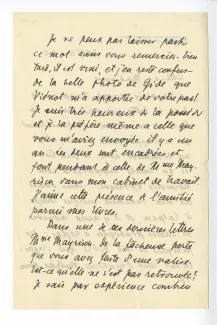 Je ne peux pas laisser partir
ce mot sans vous remercier bien
tard, il est vrai, et j'en reste confuse
de la belle photo de Gide que
Viénot m'a apportée de votre part.
Je suis très heureux de la posséder
et je la préfère même à celle que
vous m'aviez envoyée, il y a un
an. Les deux sont encadrées et
font pendant à celle de Me May-
risch dans mon cabinet de travail
J'aime cette présence de l'amitié
parmi mes livres.
Dans une de ses dernières lettres
Mme Mayrisch de la fâcheuse perte
que vous avez faite d'une valise.
Est-ce qu'elle ne s'est pas retrouvée?
Je sais par expérience combien